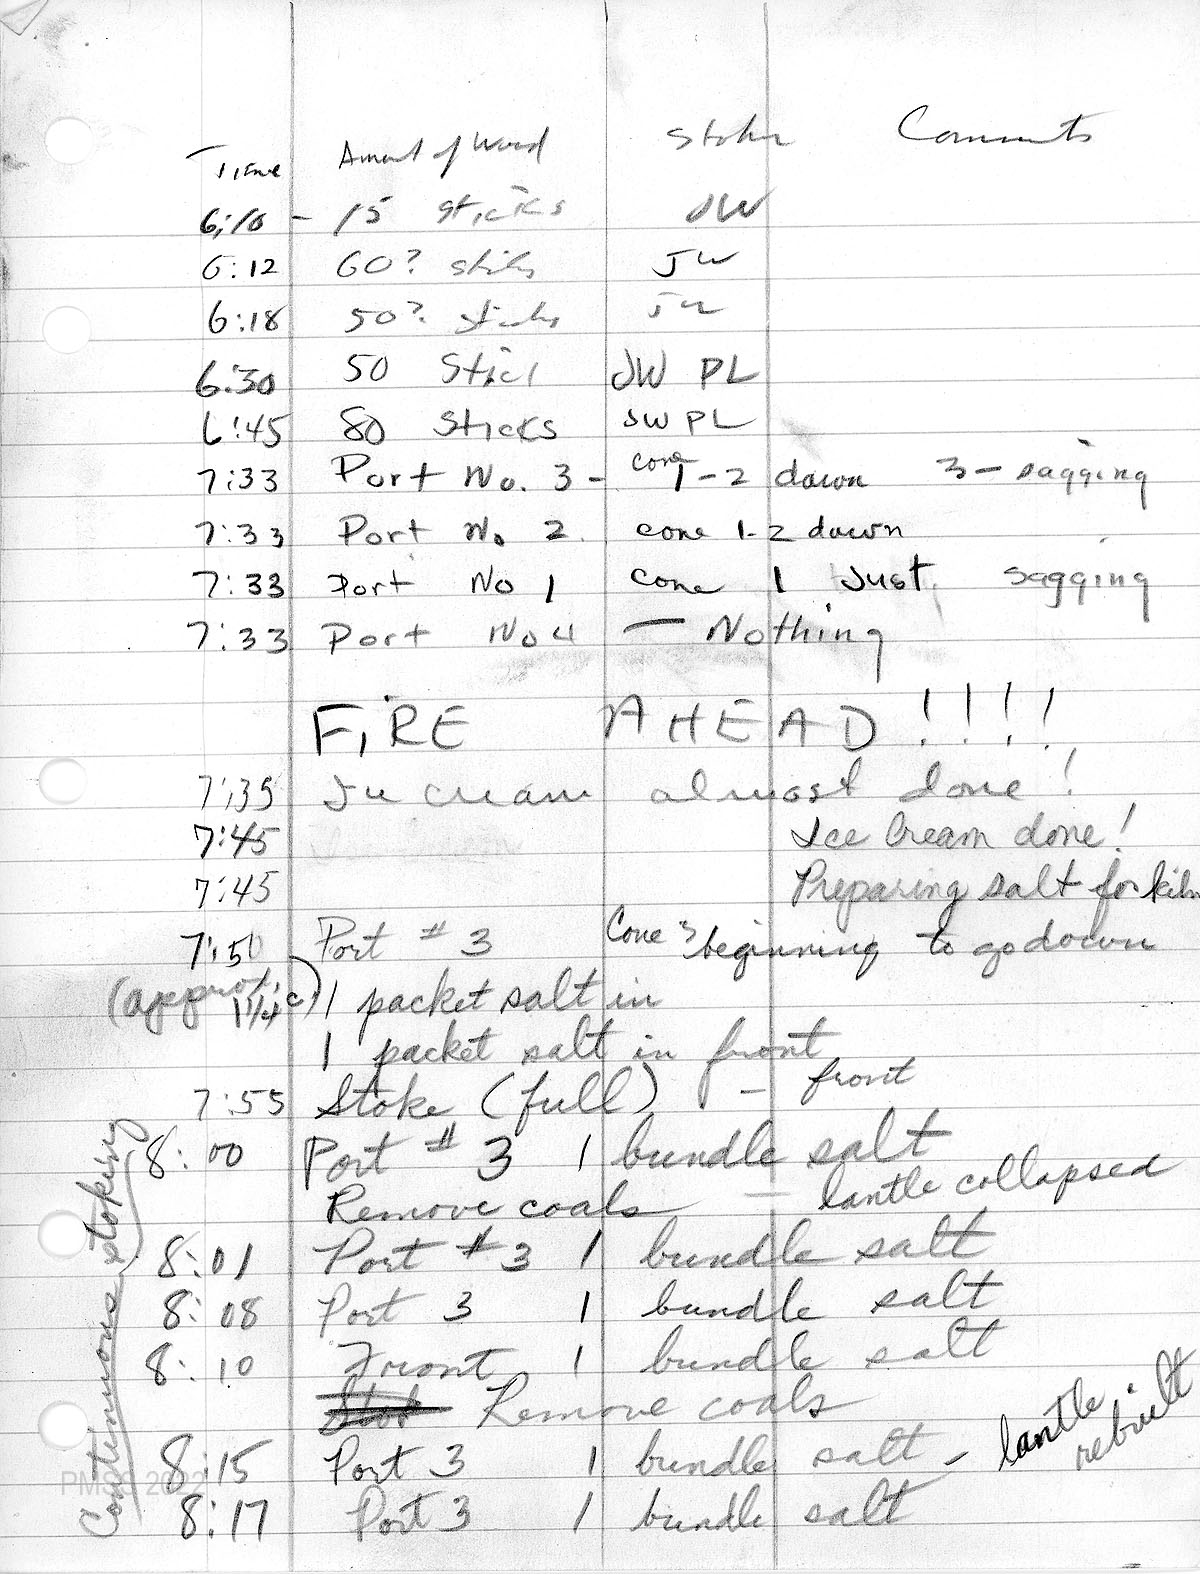 Time Amount of Wood Stoker Comments
6:10 - 15 sticks JW
6:12 60? sticks JW
6:18 50? sticks JW
6:30 50 Stick JW PL
6:45 80 Sticks JW PL
7:33 Port No. 3 - cone 1-2 down 3 - sagging
7:33 Port No 2. cone 1-2 down
7:33 Port No 1 cone 1 Just sagging
7:33 Port No 4 — Nothing
FIRE AHEAD!!!!
7:35 cream almost done!
7:45 Ice Cream done!
7:45 Preparing salt for kiln
7:50 Port # 3 Cone 3 beginning to go down
(approx. 1 1/4 c) 1 packet salt in
1 packet salt in front
7:55 Stoke (full) - front
8:00 Port # 3 1 bundle salt
Remove coals — lantle collapsed
8:01 Port # 3 1 bundle salt
8:08 Port 3 1 bundle salt
8:10 Front 1 bundle salt
Remove coals
8:15 Port 3 1 bundle salt - lantle rebuilt
8:17 Port 3 1 bundle salt
Continuous stoking
PMSS 2022